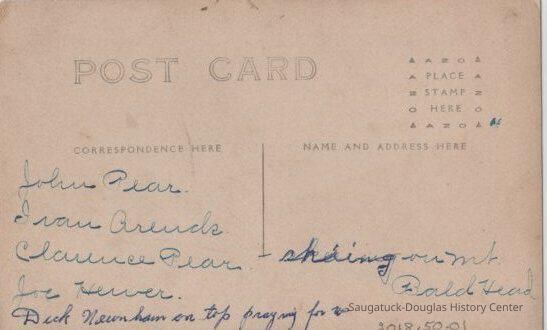 POST CARD
AZO
PLACE
STAMP
HERE
AZO
CORRESPONDENCE HERE
NAME AND ADDRESS HERE
John Pear.
Ivan Arends.
Clarence Pear. - skiing on Mt.
Bald Head
Joe Hewer.
Dick Newnham on top praying for us
Saugatuck-Douglas History Center
2018.50.01